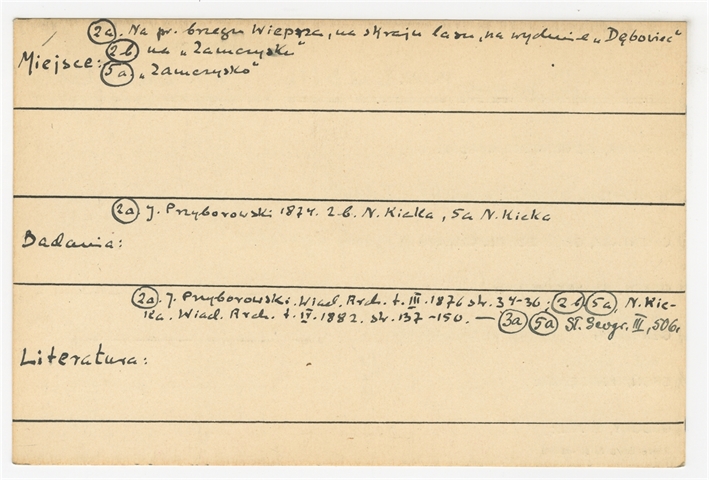 2a. Na pr. brzegu Wieprza, na skraju lasu, na wydmie „Dębowiec”
2b na „Zamczysku”
Miejsce:
5a „Zamczysko”
2a. J. Przyborowski 1874. 2-b. N. Kicka, 5a N. Kicka
Badania:
2a. J. Przyborowski. Wiad. Arch. t. III. 1876 str. 34-36; 2b 5a, N. Kic-
ka. Wiad. Arch. t. IV. 1882. str. 137-150. — 3a 5a Sł. Geogr. III, 506.
Literatura: